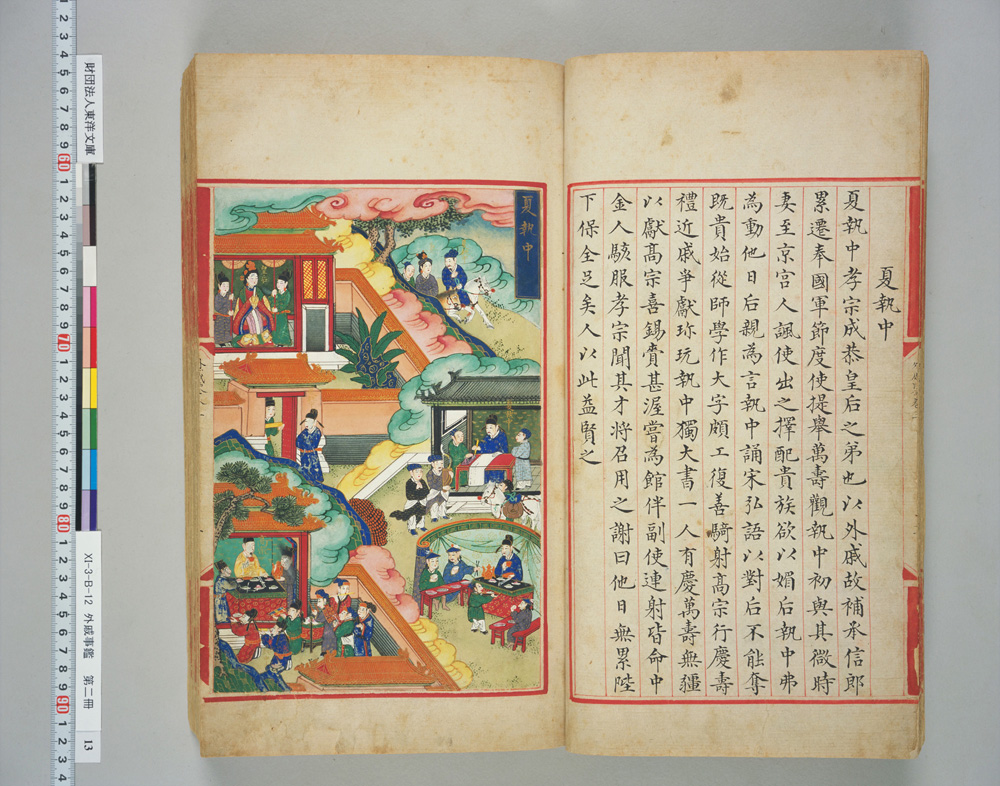 夏執中
夏執中孝宗成恭皇后之弟也以外戚故補承信郎
累遷奉國軍節度使提舉萬壽觀執中初與其微時
妻至京宮人諷使出之擇配貴族欲以媚后執中弗
為動他日后親為言執中誦宋弘語以對后不能奪
既貴始從師學作大字頗工復善騎射高宗行慶壽
禮近戚爭獻珍玩執中獨大書一人有慶萬壽無疆
以獻高宗喜錫賚甚渥嘗為館伴副使連射皆命中
金人駭服孝宗聞其才將召用之謝曰他日無累陛
下保全足矣人以此益賢之
夏執中
財団法人東洋文庫
XI-3-B-12 外戚事鑑 第二冊
13